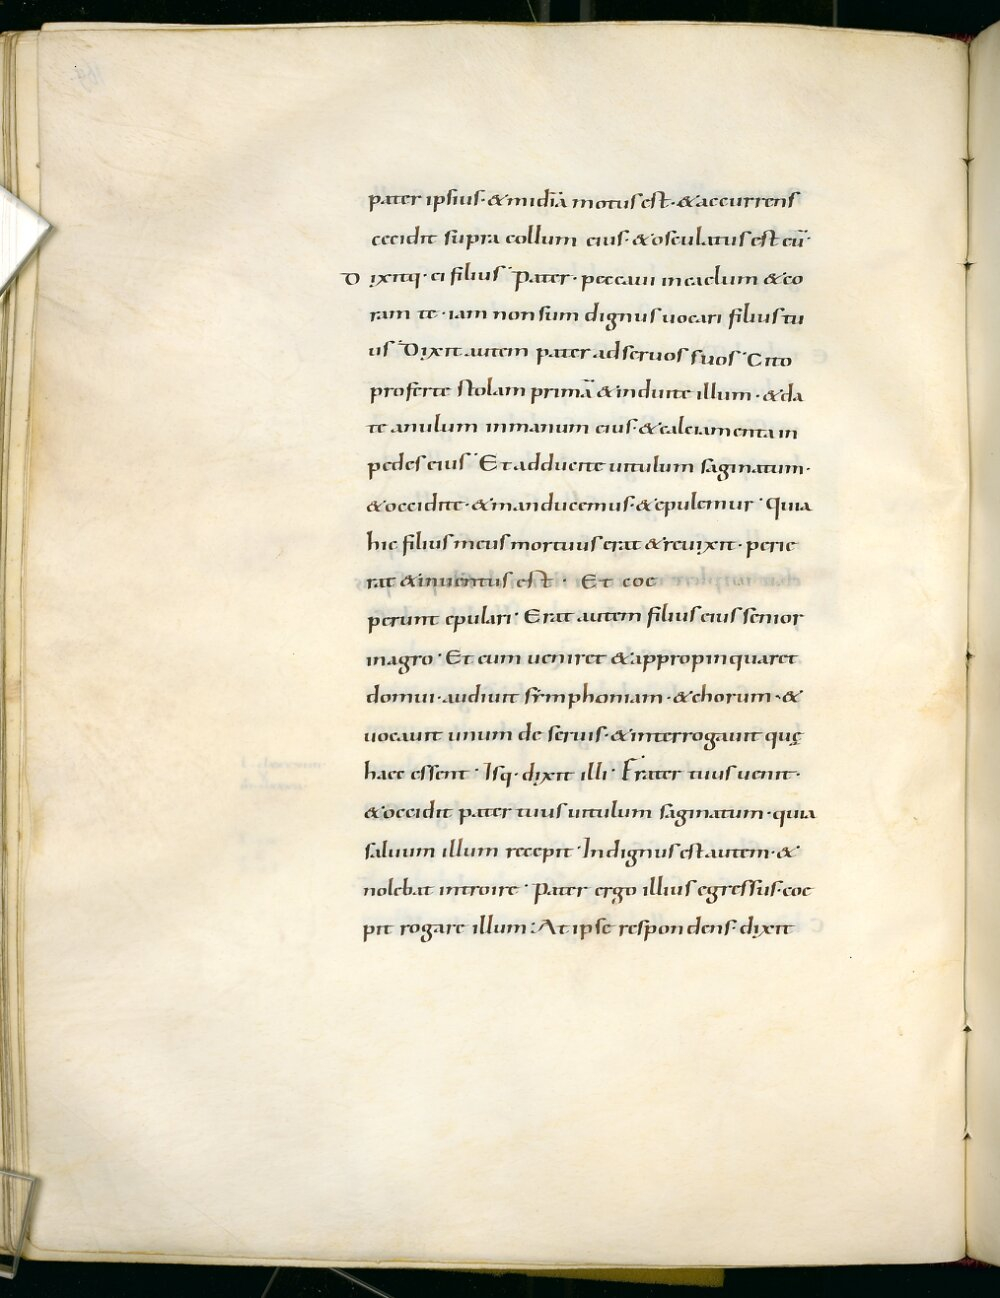 pater ipsius· & mid̅ia̅ motus est· & accurrens
cecidit supra collum eius· & osculatus est eu̅·
Dixitq· ei filius· Pater· peccaui in caelum & co
ram te· iam non sum dignus uocari filius tu
us· Dixit autem pater ad seruos suos· Cito
proferte stolam prima̅ & induite illum· & da
te anulum in manum eius· & calciamenta in
pedes eius· Et adducite uitulum saginatum·
& occidite· & manducemus· & epulemur· Quia
hic filius meus mortuus erat & reuixit· perie
rat & inuentus est· Et coe
perunt epulari· Erat autem filius eius senior
in agro· Et cum ueniret & appropinquaret
domui· audiuit symphoniam· & chorum· &
uocauit unum de seruis· & interrogauit quę
haec essent· Isq· dixit illi· Frater tuus uenit·
& occidit pater tuus uitulum saginatum· quia
saluum illum recepit· Indignus est autem· &
nolebat introire· Pater ergo illius egressus· coe
pit rogare illum: At ipse respondens· dixit